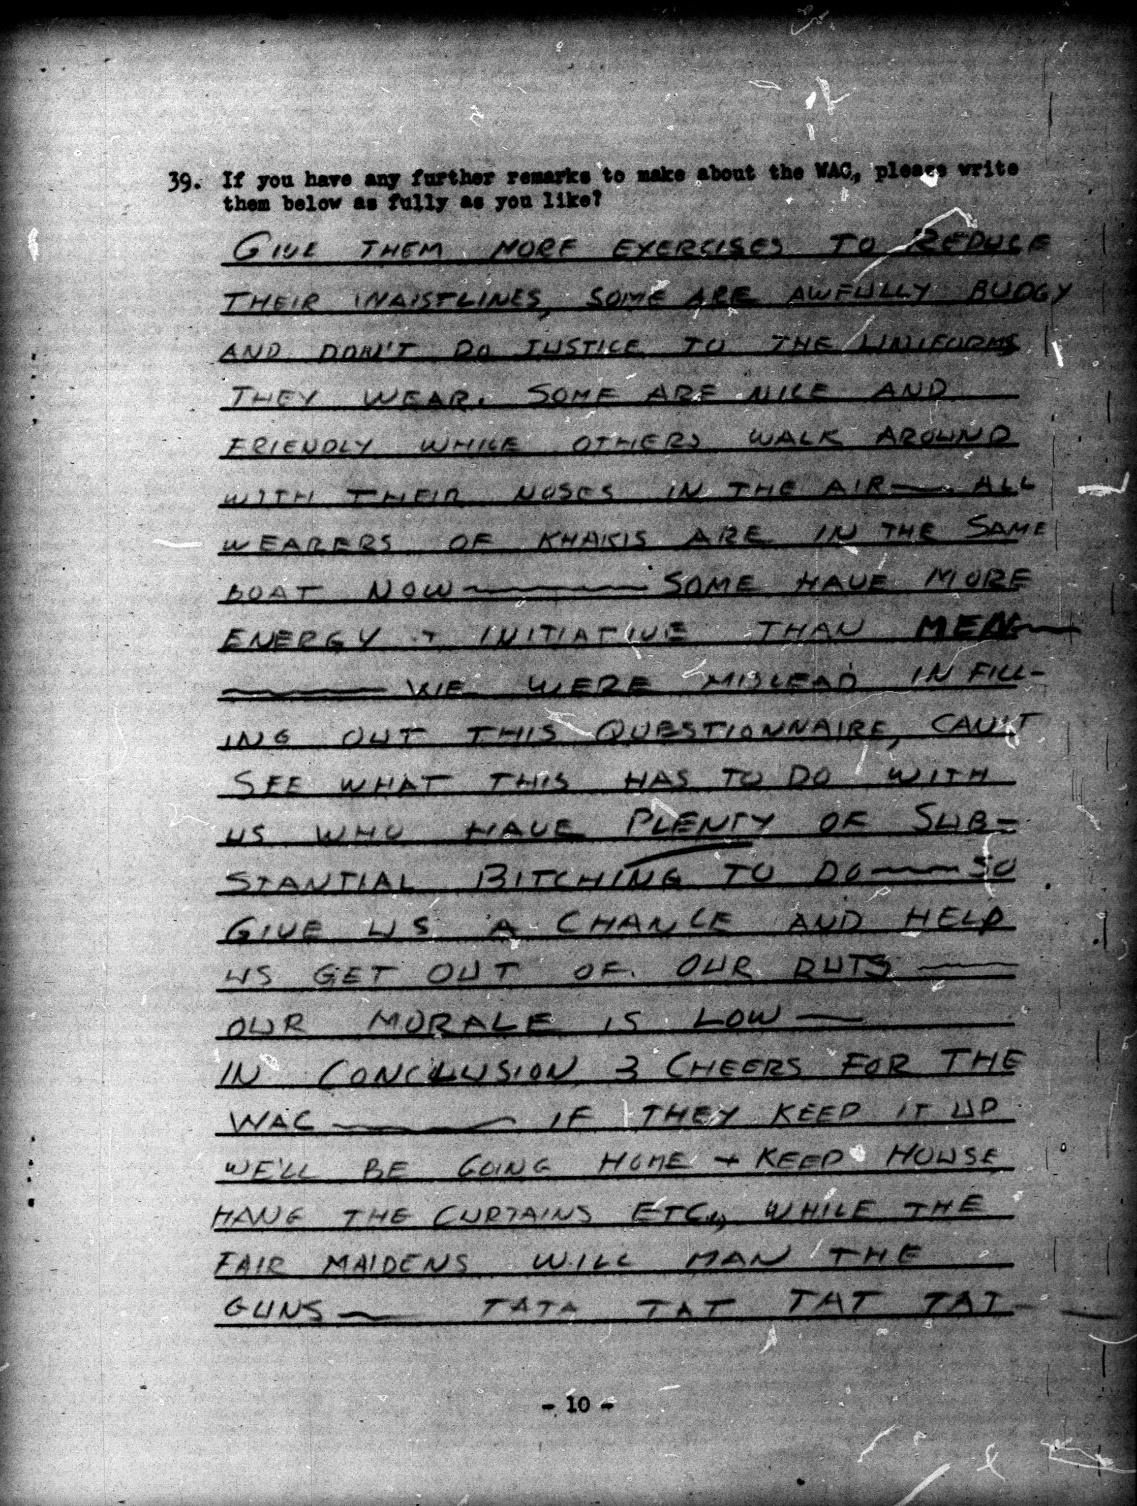 39. If you have any further remarks to make about the WAC, please write
them below as fully as you like?
GIVE THEM MORE EXERCISES TO REDUCE
THEIR WAISTLINES, SOME ARE AWFULLY BUDGY
AND DON'T DO JUSTICE TO THE UNIFORMS
THEY WEAR. SOME ARE NICE AND
FRIENDLY WHILE OTHERS WALK AROUND
WITH THEIR NOSES IN THE AIR — ALL
WEARERS OF KHAKIS ARE IN THE SAME
BOAT NOW — SOME HAVE MORE
ENERGY + INITIATIVE THAN MEN —
— WE WERE MISLEAD IN FILL-
ING OUT THIS QUESTIONNAIRE, CAN'T
SEE WHAT THIS HAS TO DO WITH
US WHO HAVE PLENTY OF SUB-
STANTIAL BITCHING TO DO — SO
GIVE US A CHANCE AND HELP
US GET OUT OF OUR RUTS —
OUR MORALE IS LOW —
IN CONCLUSION 3 CHEERS FOR THE
WAC — IF THEY KEEP IT UP
WE'LL BE GOING HOME + KEEP HOUSE
HANG THE CURTAINS ETC., WHILE THE
FAIR MAIDENS WILL MAN THE
GUNS — TATA TAT TAT TAT —
- 10 -